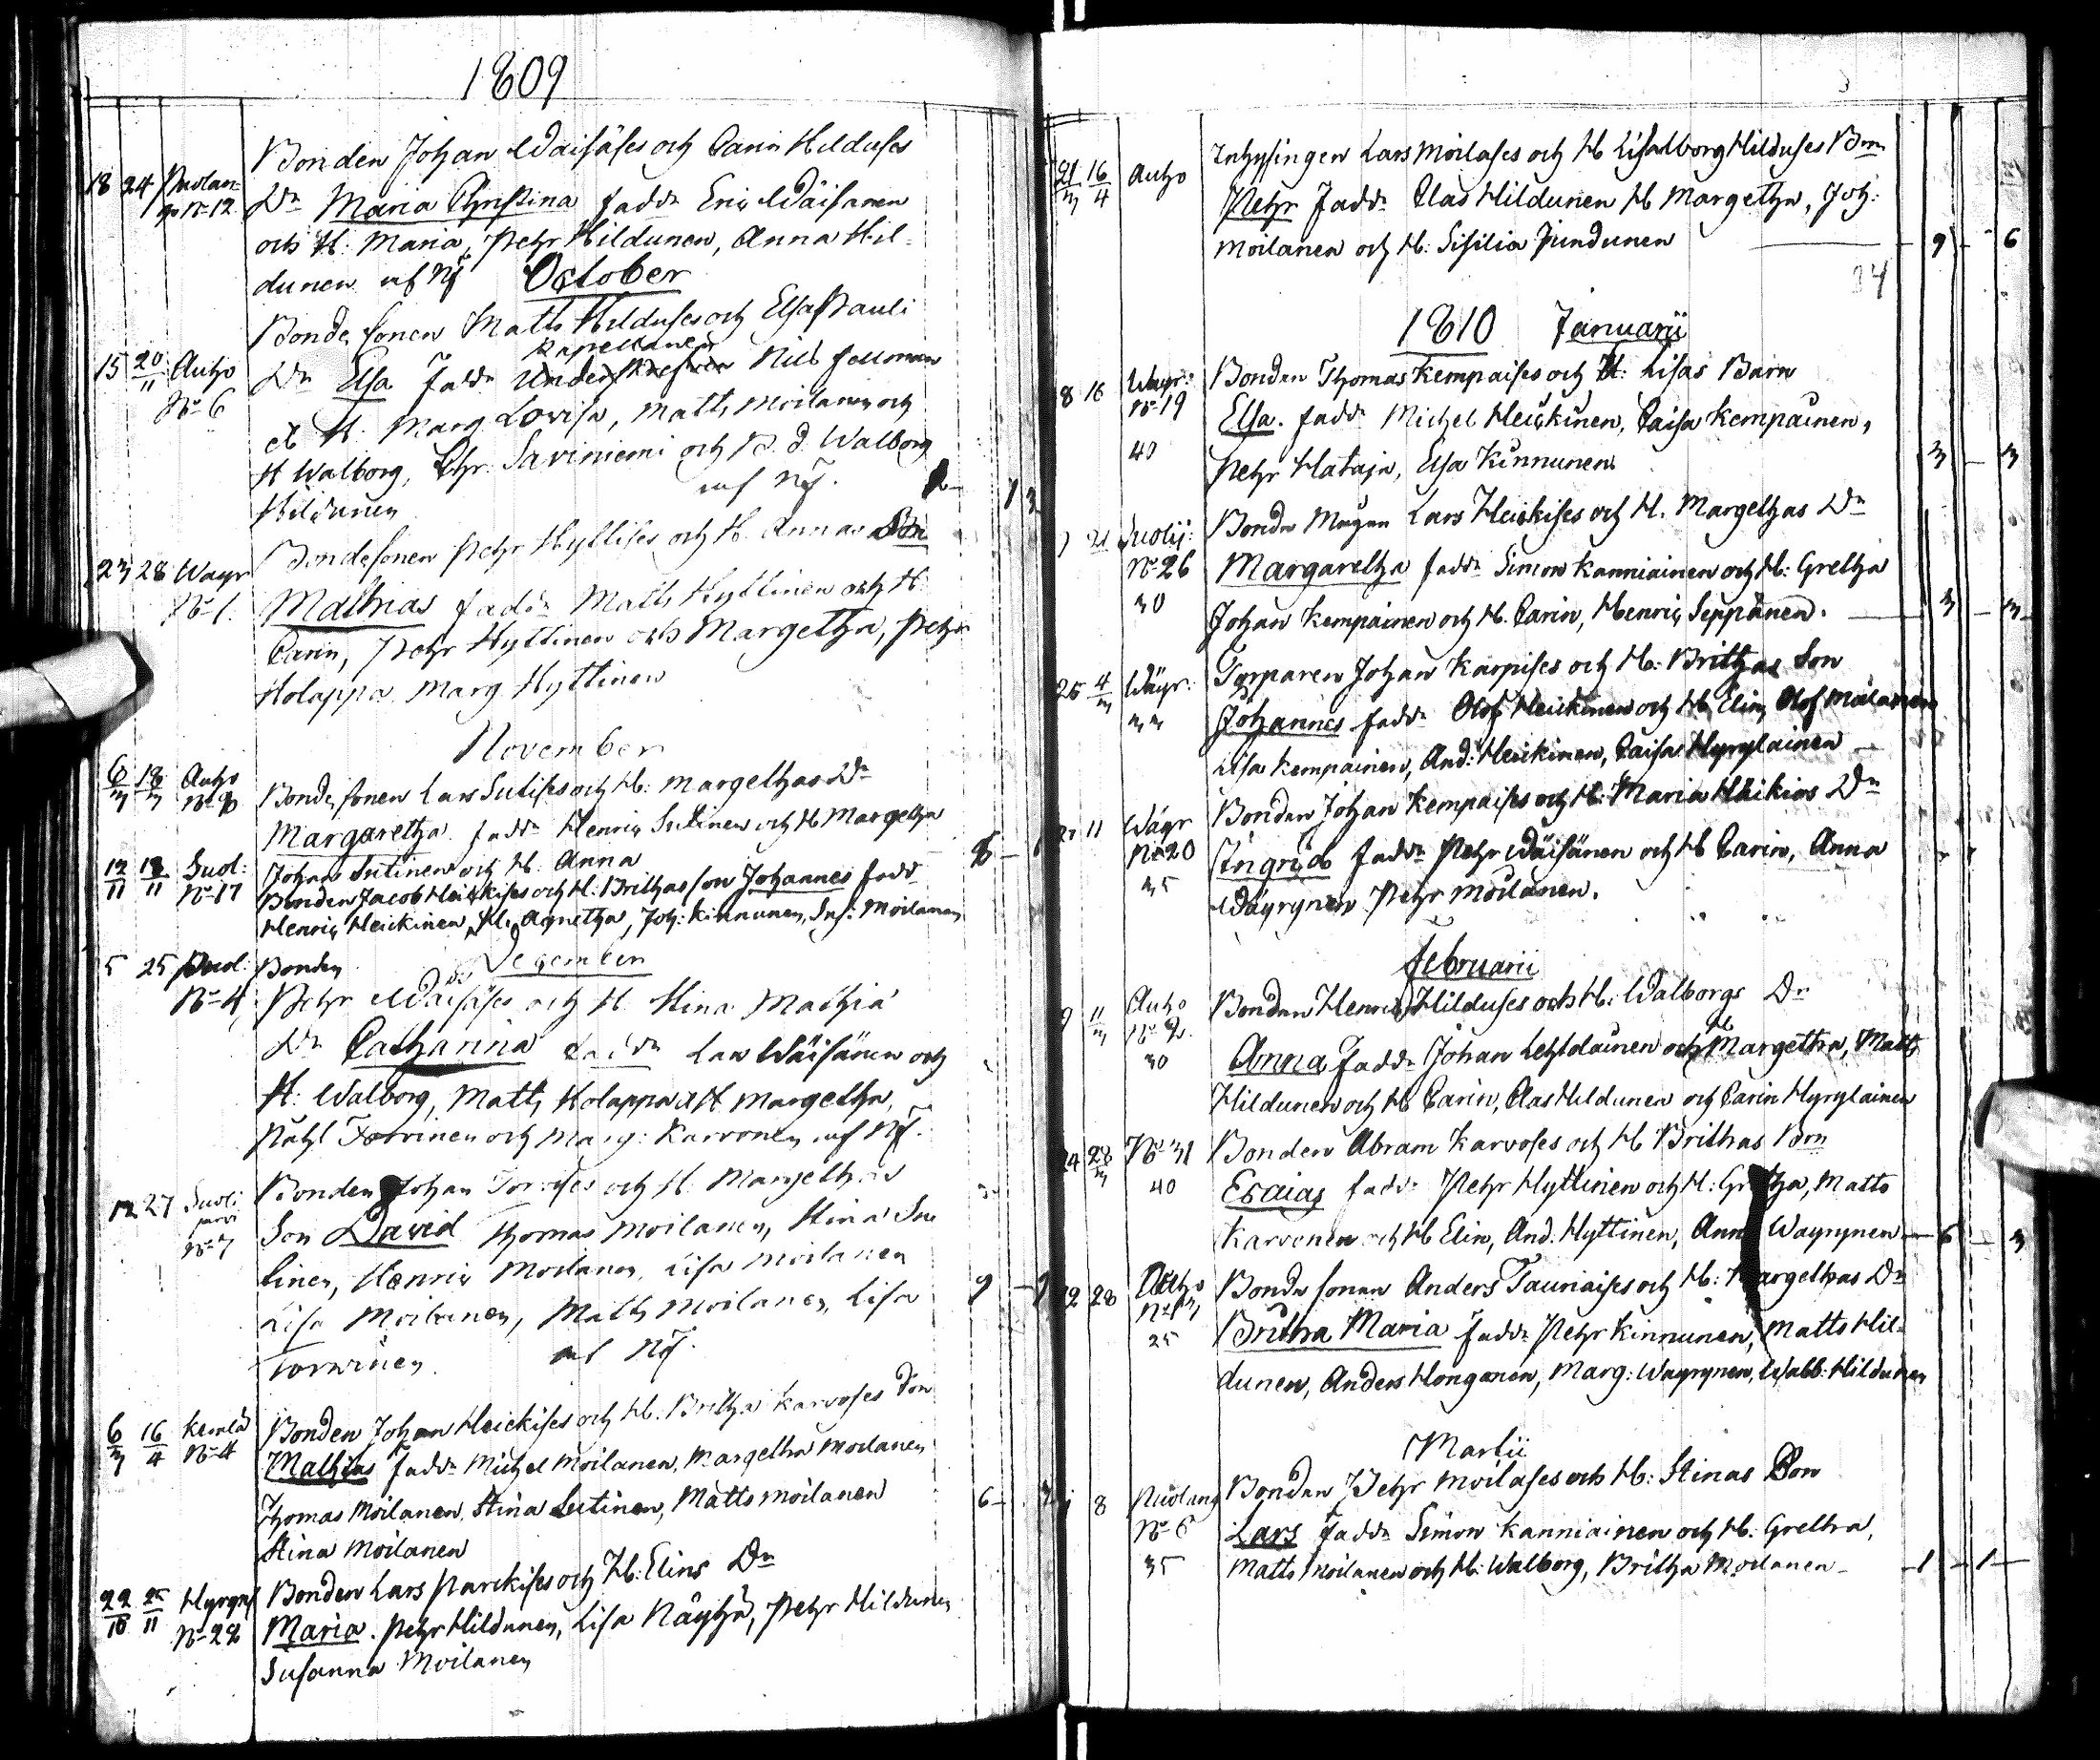 1809
Bonden Johan Wäisäses och Carin Hilduses
18 24 Puolan-
go No 12 Dr Maria Christina fadd. Eric Wäisänen
och H: Maria, Pehr Hildunen, Anna Hil-
dunen
October
Bonde sonen Matts Hilduses och Elsa Pauli
Kapellanen
15 20/11 Autio Dr Elsa fadd. Nils Fellman
No 6 et H: Marg Lovisa, Matts Moilanen och
H Walborg, Chr: Saviniemi och P. d. Walborg
Hildunen
1 3
Bondesonen Pehr Hyttises och H. Annas Son
23 28 Wäyr
No 1. Mathias fadd. Matts Hyttinen och H.
Carin, Pehr Hyttinen och Margetha, Pehr
Holappa Marg Hyttinen
November
6/3 18/3 Autio
No 8 Bonde sonen Lars Sutises och H: Margethas Dr
Margaretha fadd. Henric Sutinen och H Margetha
Johan Sutinen och H. Anna
12/11 13/11 Suol:
No 17 Bonden Jacob Heickises och H. Brithas son Johannes fadd
Henric Heickinen, H. Agnetha, Joh: Kinnunen, Moilanen
December
5 25 Puol: Bonden
No 4 Pehr Wäisäses och H Stina Mathiæ
Dr Catharina fadd. Lars Wäisänen och
H: Walborg, Matts Holappa et H Margetha,
Torvinen och Marg: Karvonen
12 27 Suoli
jarvi
No 7 Bonden Johan Torvises och H. Margethas
Son David Thomas Moilanen, Stina Su
tinen, Henric Moilanen, Lisa Moilanen
Lisa Moilanen, Matts Moilanen, Lisa
Torvinen
9
6/3 16/4 Kemilä
No 4 Bonden Johan Heickises och H: Britha Karvoses Son
Mathias fadd. Michel Moilanen, Margetha Moilanen
Thomas Moilanen, Stina Sutinen, Matts Moilanen 6
Stina Moilanen
22/10 25/11 Hyryns
No 28 Bonden Lars Parckises och H: Elins Dr
Maria. Pehr Hildunen, Lisa Näyhä, Pehr Hildunen
Susanna Moilanen
21/3 16/4 Autio Inhysingen Lars Moilases och H Lis Walborg Hilduses
Pehr fadd. Clas Hildunen H Margetha, Joh:
Moilanen och H: Sisilia 9 - 6
34
1810 Januarii
8 16 Wäyr:
No 19 Bonden Thomas Kempaises och H: Lisas Barn
Elsa. fadd. Michel Heickinen, Caisa Kempainen,
40 Pehr Hataja, Elsa Kinnunen 3 - 3
21 Suolij:
No 26 Bonde Lars Heickises och H. Margethas Dr
Margaretha fadd. Simon Kanniainen och H: Gretha
30 Johan Kempainen och H. Carin, Henric Seppänen. 3 - 3
25 4/3 Wäyr: Torparen Johan Karpises och H: Brithas Son
33 Johannes fadd. Olof Heickinen och H Elin, Olof Mälänen
Lisa Kempainen, And: Heickinen, Caisa Hyrylainen
11 Wäyr
No 20 Bonden Johan Kempaises och H: Maria Dr
Ingrid fadd. Pehr Wäisänen och H Carin, Anna
35 Wäyrynen Pehr Moilanen.
Februarii
9 11/3 Autio
No 2. Bonden Henric Hilduses och H: Walborgs Dr
30 Anna fadd. Johan Lehtolainen och H Margetha, Matts
Hildunen och H Carin, Clas Hildunen och Carin Hyrylainen
24 28/3 No 31 Bonden Abram Karvoses och H Brithas
40 Esaias fadd. Pehr Hyttinen och H: Gretha, Matts
Karvonen och H Elin, And: Hyttinen, Anna Wayrynen 6 - 3
22 28 Autio Bonde sonen Anders Tauriaises och H: Margethas Dr
25 Britha Maria fadd. Pehr Kinnunen, Matts Hil-
dunen, Anders Honganen, Marg: Wayrynen, Walb: Hildunen
Martii
8 Puolang
No 6 Bonden Pehr Moilases och H: Stinas Son
Lars fadd. Simon Kanniainen och H: Gretha,
35 Matts Moilanen och H: Walborg, Britha Moilanen 1 - 1